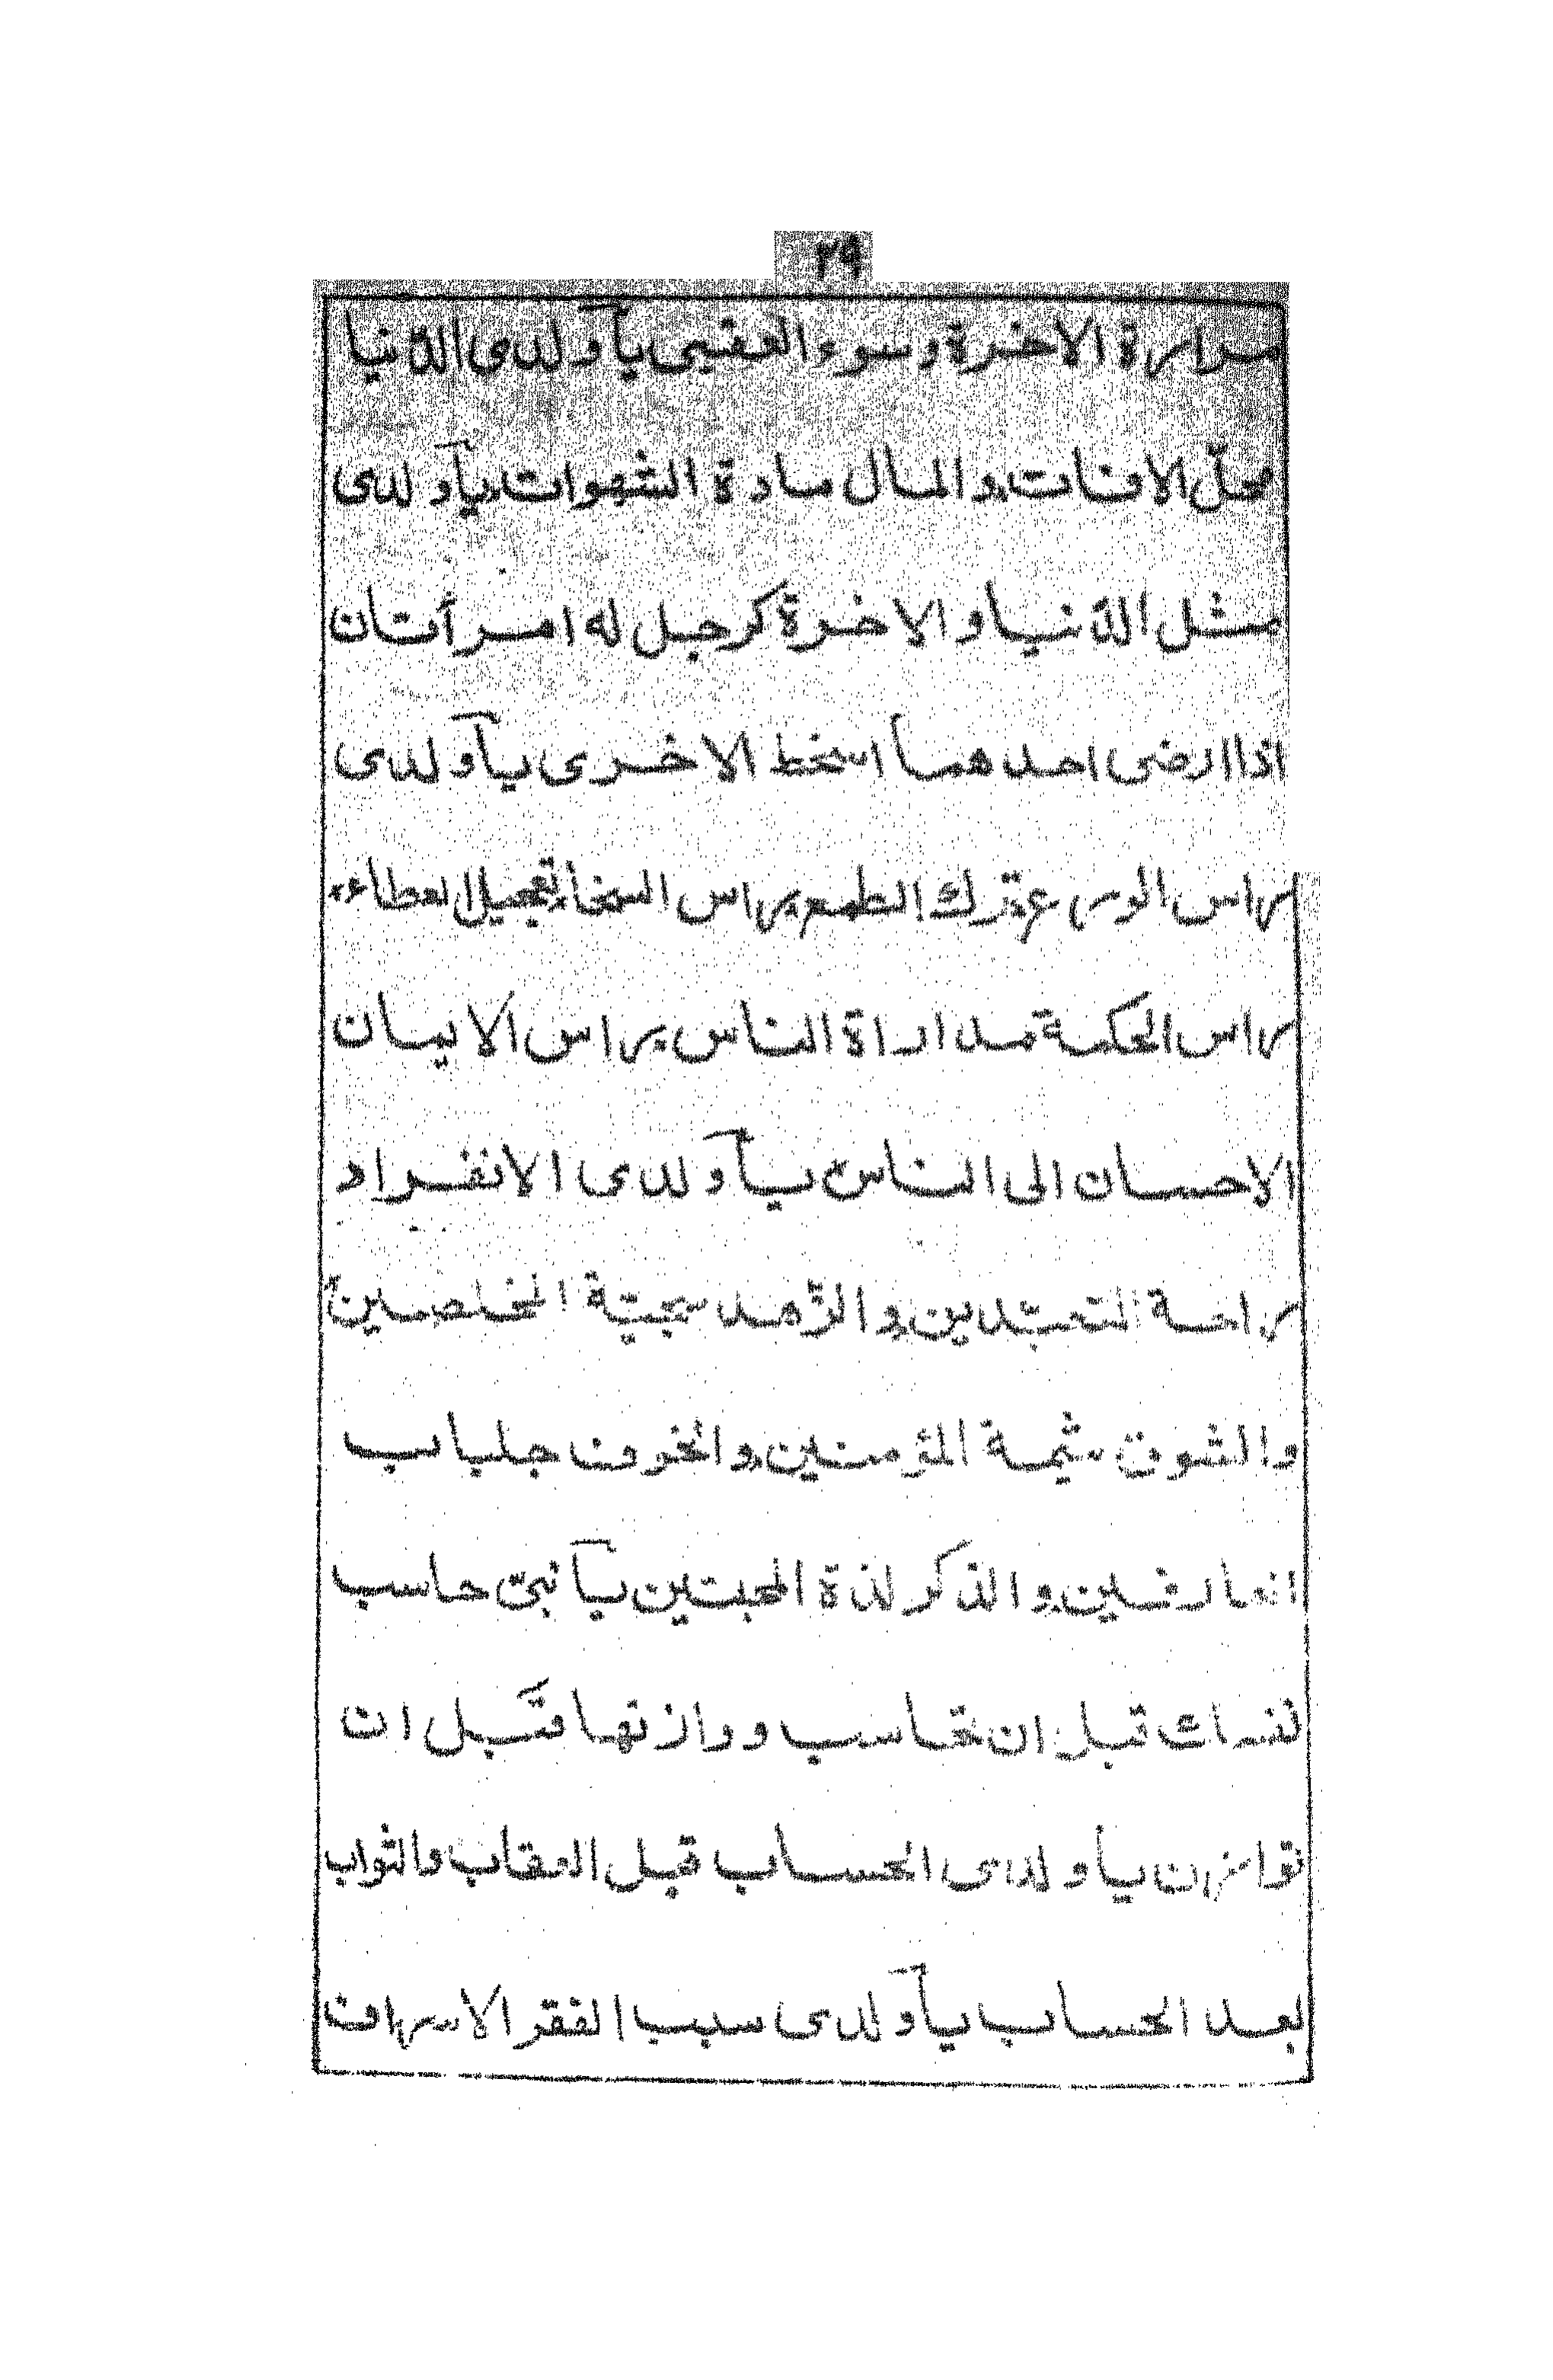 ٢٩
مرارة الاخرة وسوء العقبى يآولدى الدّنيا
محلّ الافات، والمال مادة الشهوات، يآولدى
مثل الدّنيا والاخرة كرجل له امرأتان
اذا ارضى احدهما اسخط الاخرى يآولدى
راس الورع ترك الطمع، راس السخا تعجيل العطاء،
راس الحكمة مداراة الناس، راس الايمان
الاحسان الى الناس، يآولدى الانفراد
راحة المتعبّدين، والزّهد سجيّة المخلصين،
والشوق شيمة المؤمنين، والخوف جلباب
العارفين، والذكر لذة المحبّين يآ نبىّ حاسب
نفسك قبل ان تحاسب ووازنها قبل ان
توازن ياولدى الحساب قبل العقاب والثواب
بعد الحساب يآولدى سبب الفقر الاسراف